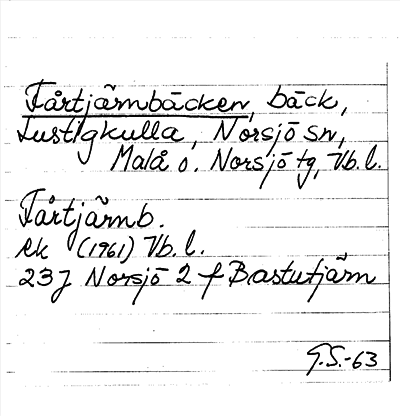 Fårtjärnbäcken, bäck,
Lustigkulla, Norsjö sn,
Malå o. Norsjö tg, Vb. l.
Fårtjärnb.
Rk (1961) Vb. l.
23J Norsjö 2 f Bastutjärn
G.S.-63